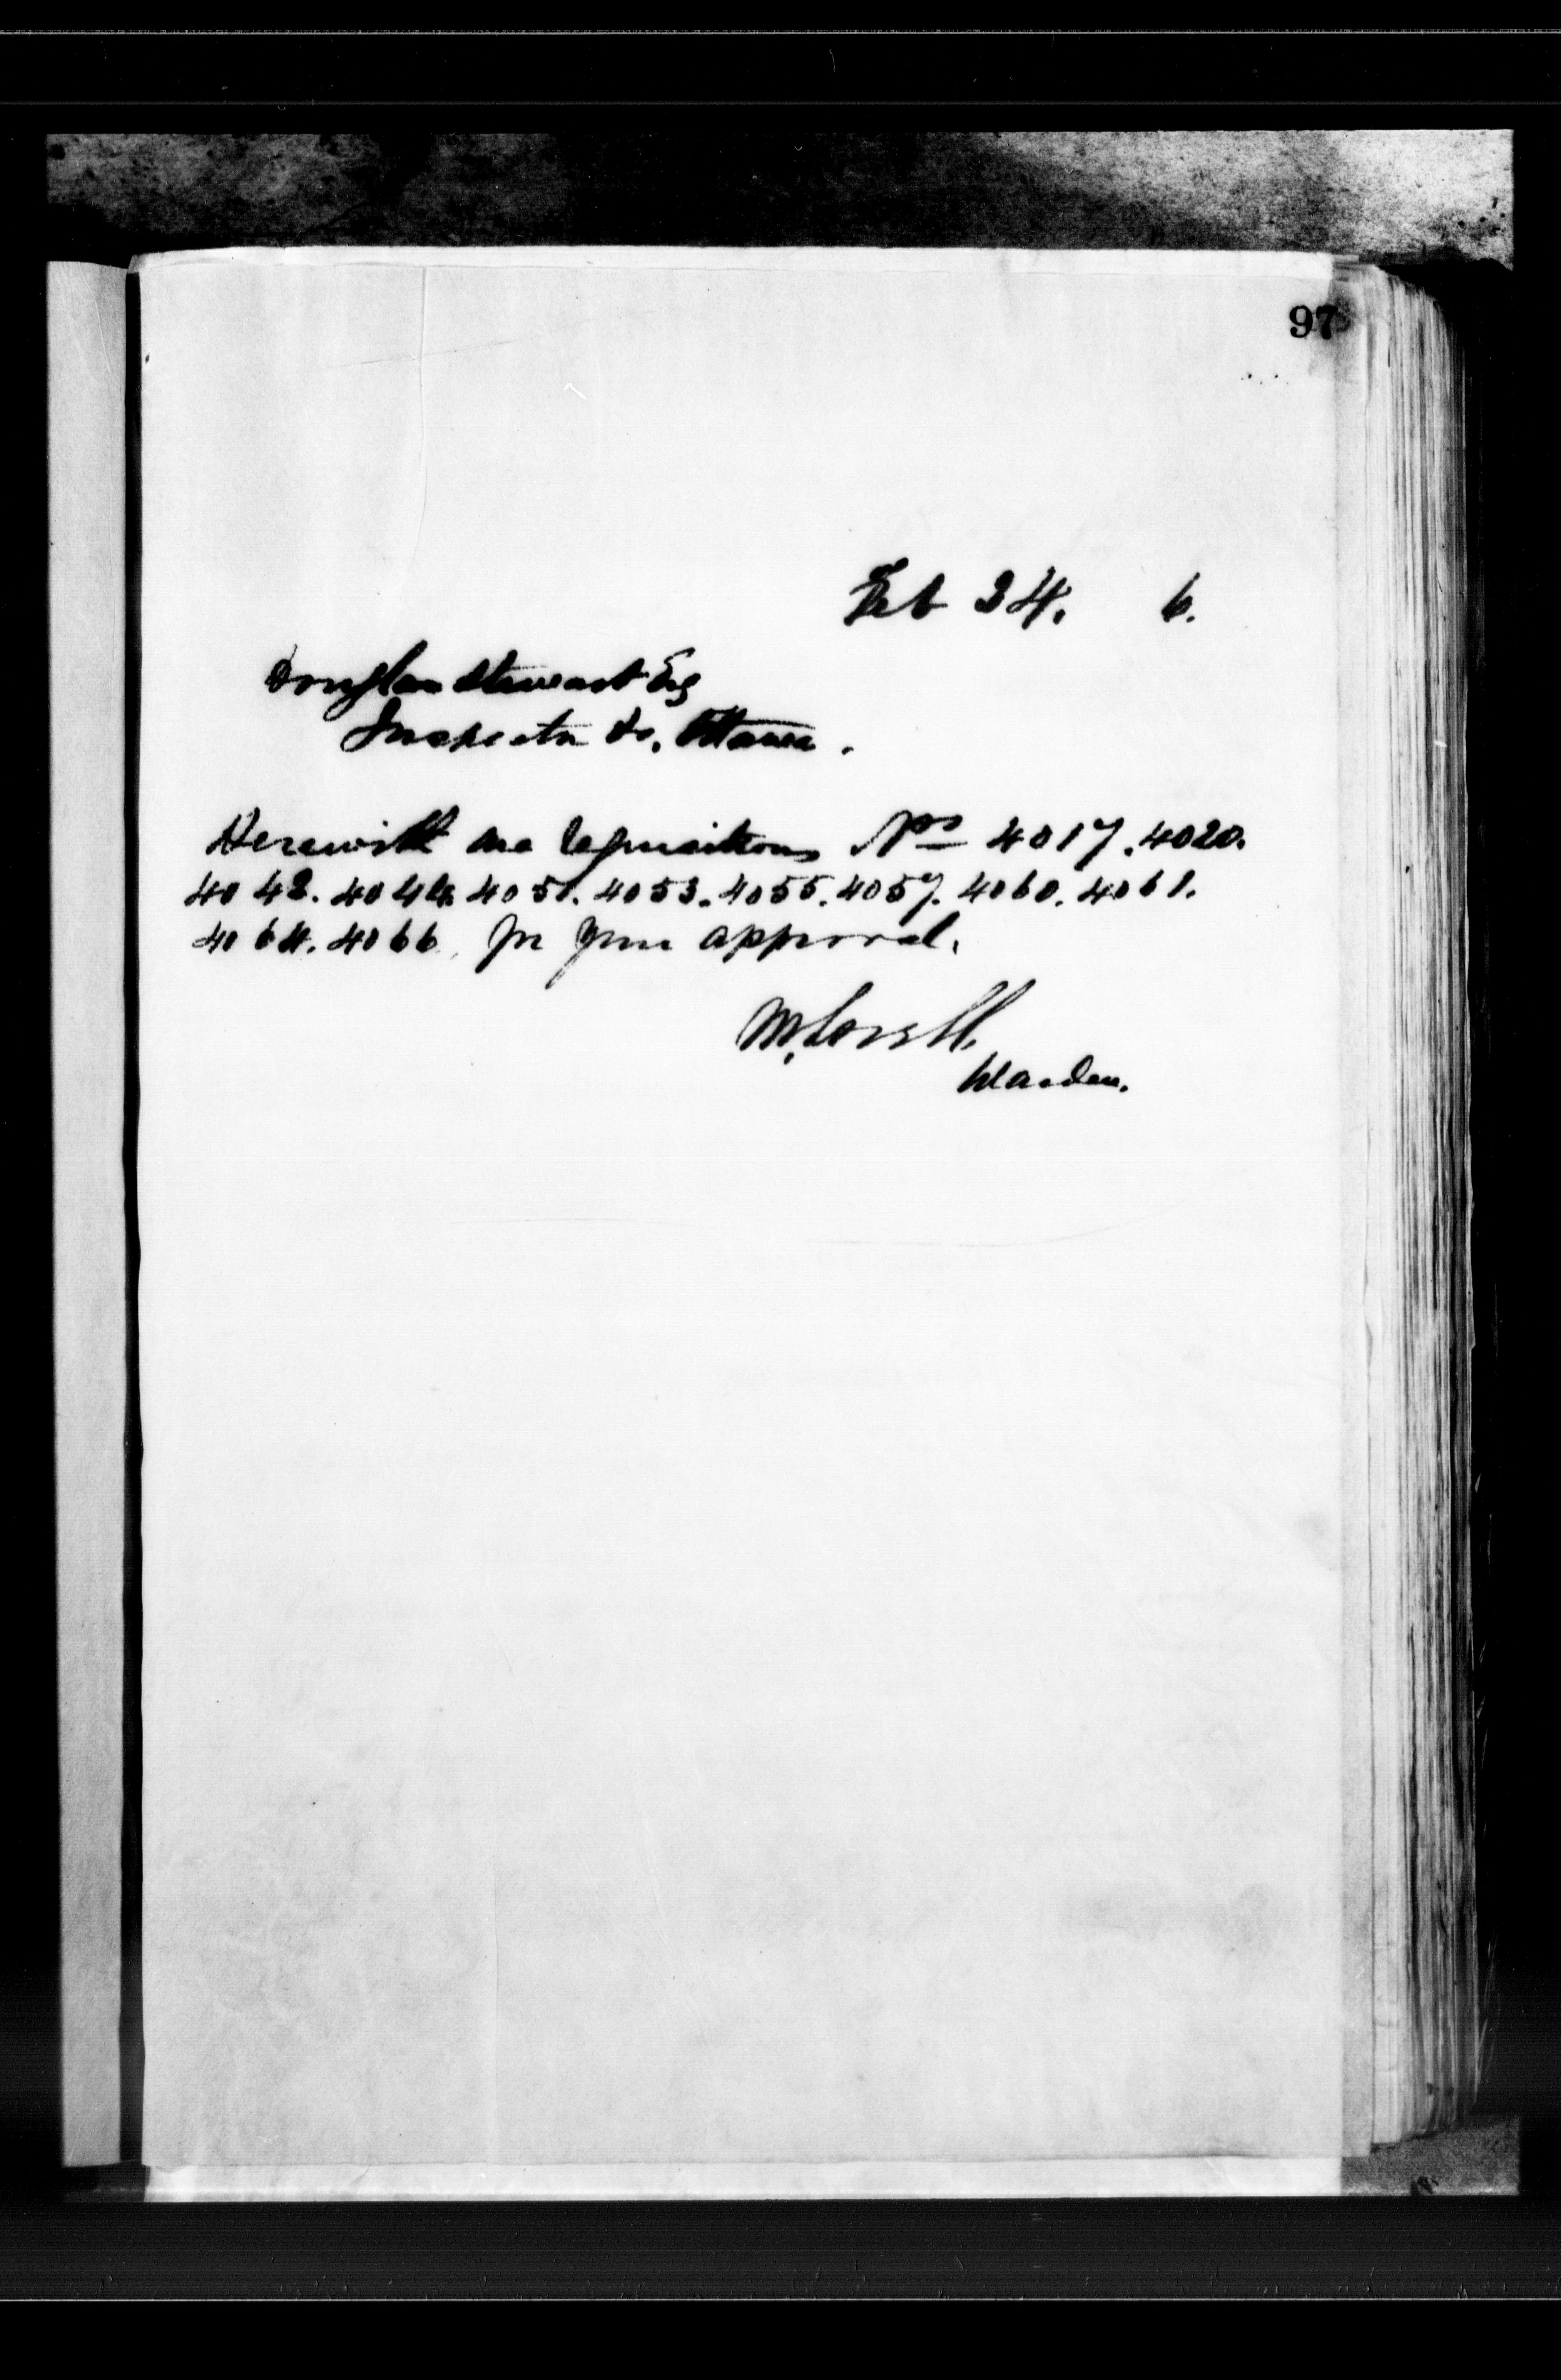 97
Feb 24. 6.
Douglas Stewart Esq
Inspector &c, Ottawa.
Herewith are requisitions Nos 4017. 4020.
4042. 4044. 4051. 4053. 4055. 4057. 4060. 4061.
4064. 4066. for your approval.
Warden.